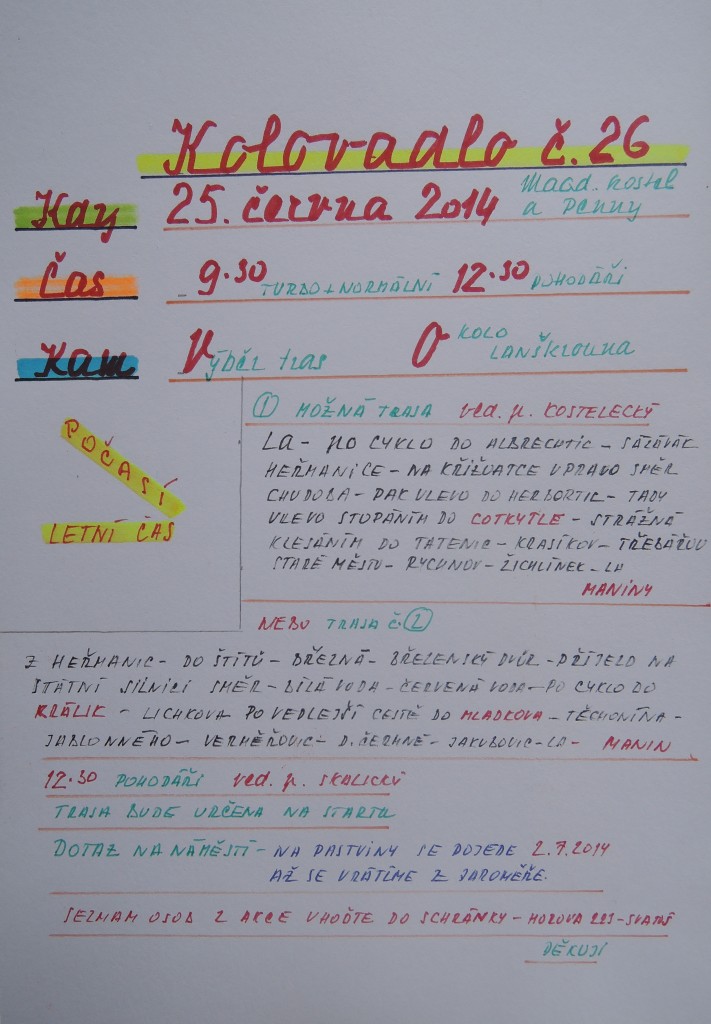 Kolovadlo č. 26
Kdy 25. června 2014 Maád. kostel
a Penny
Čas 9.30 TURBO + NORMÁLNÍ 12.30 POHODÁŘI
Kam Výběr tras OKOLO
LANŠKROUNA
POČASÍ
LETNÍ ČAS
① MOŽNÁ TRASA ved. p. KOSTELECKÝ
LA - PO CYKLO DO ALBRECHTIC - SÁZAVÁK
HEŘMANICE - NA KŘIŽVATCE VPRAVO SMĚR
CHUDOBA - PAK VLEVO DO HERBORTIC - TADY
VLEVO STOUPÁNÍM DO COTKYTLE - STRÁŽNÁ
KLESÁNÍM DO TATENIC - KRASÍKOV - TŘEBAŘOV
STARÉ MĚSTO - RYCHNOV - ŽICHLÍNEK - LA
MANINY
NEBO TRASA Č. ②
Z HEŘMANIC - DO ŠTÍTŮ - BŘEZNÁ - BŘEZENSKÝ DVŮR - PŘÍJEZD NA
STÁTNÍ SILNICI SMĚR - BÍLÁ VODA - ČERVENÁ VODA - PO CYKLO DO
KRÁLIK - LICHKOVA PO VEDLEJŠÍ CESTĚ DO MLADKOVA - TĚCHONÍNA -
JABLONNÉHO - VERMĚŘOVIC - D. ČERMNÉ - JAKUBOVIC - LA - MANIN
12.30 POHODÁŘI ved. p. SKALICKÝ
TRASA BUDE URČENA NA STARTU
DOTAZ NA NÁMĚSTÍ - NA PASTVINY SE POJEDE 2.7.2014
AŽ SE VRÁTÍME Z JAROMĚŘE.
SEZNAM OSOB Z AKCE VHOĎTE DO SCHRÁNKY -
DĚKUJI